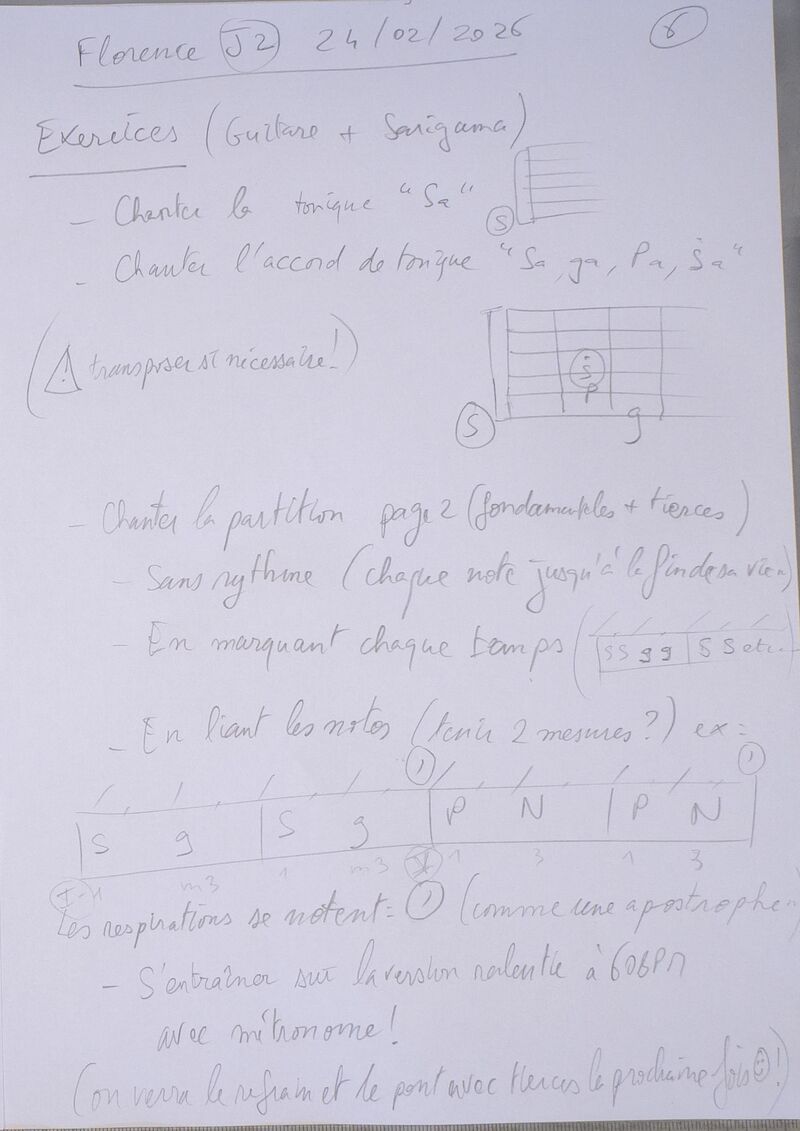 Florence J2 24/02/2026 6
Exercices (Guitare + Sarigama)
- Chanter la tonique "Sa"
S
- Chanter l'accord de tonique "Sa, ga, Pa, Ṡa"
(⚠ transposer si nécessaire!)
Ṡ
P
S
g
- Chanter la partition page 2 (fondamentales + tierces)
- Sans rythme (chaque note jusqu'à la fin de sa vie)
- En marquant chaque temps (SS gg | S S etc..
- En liant les notes (tenir 2 mesures?) ex =
| S g | S g | P N | P N |
I- 1 m3 1 m3 V 1 3 1 3
Les respirations se notent = ' (comme une apostrophe)
- S'entraîner sur la version ralentie à 60BPM
avec métronome!
(on verra le refrain et le pont avec tierces la prochaine fois ☺!)